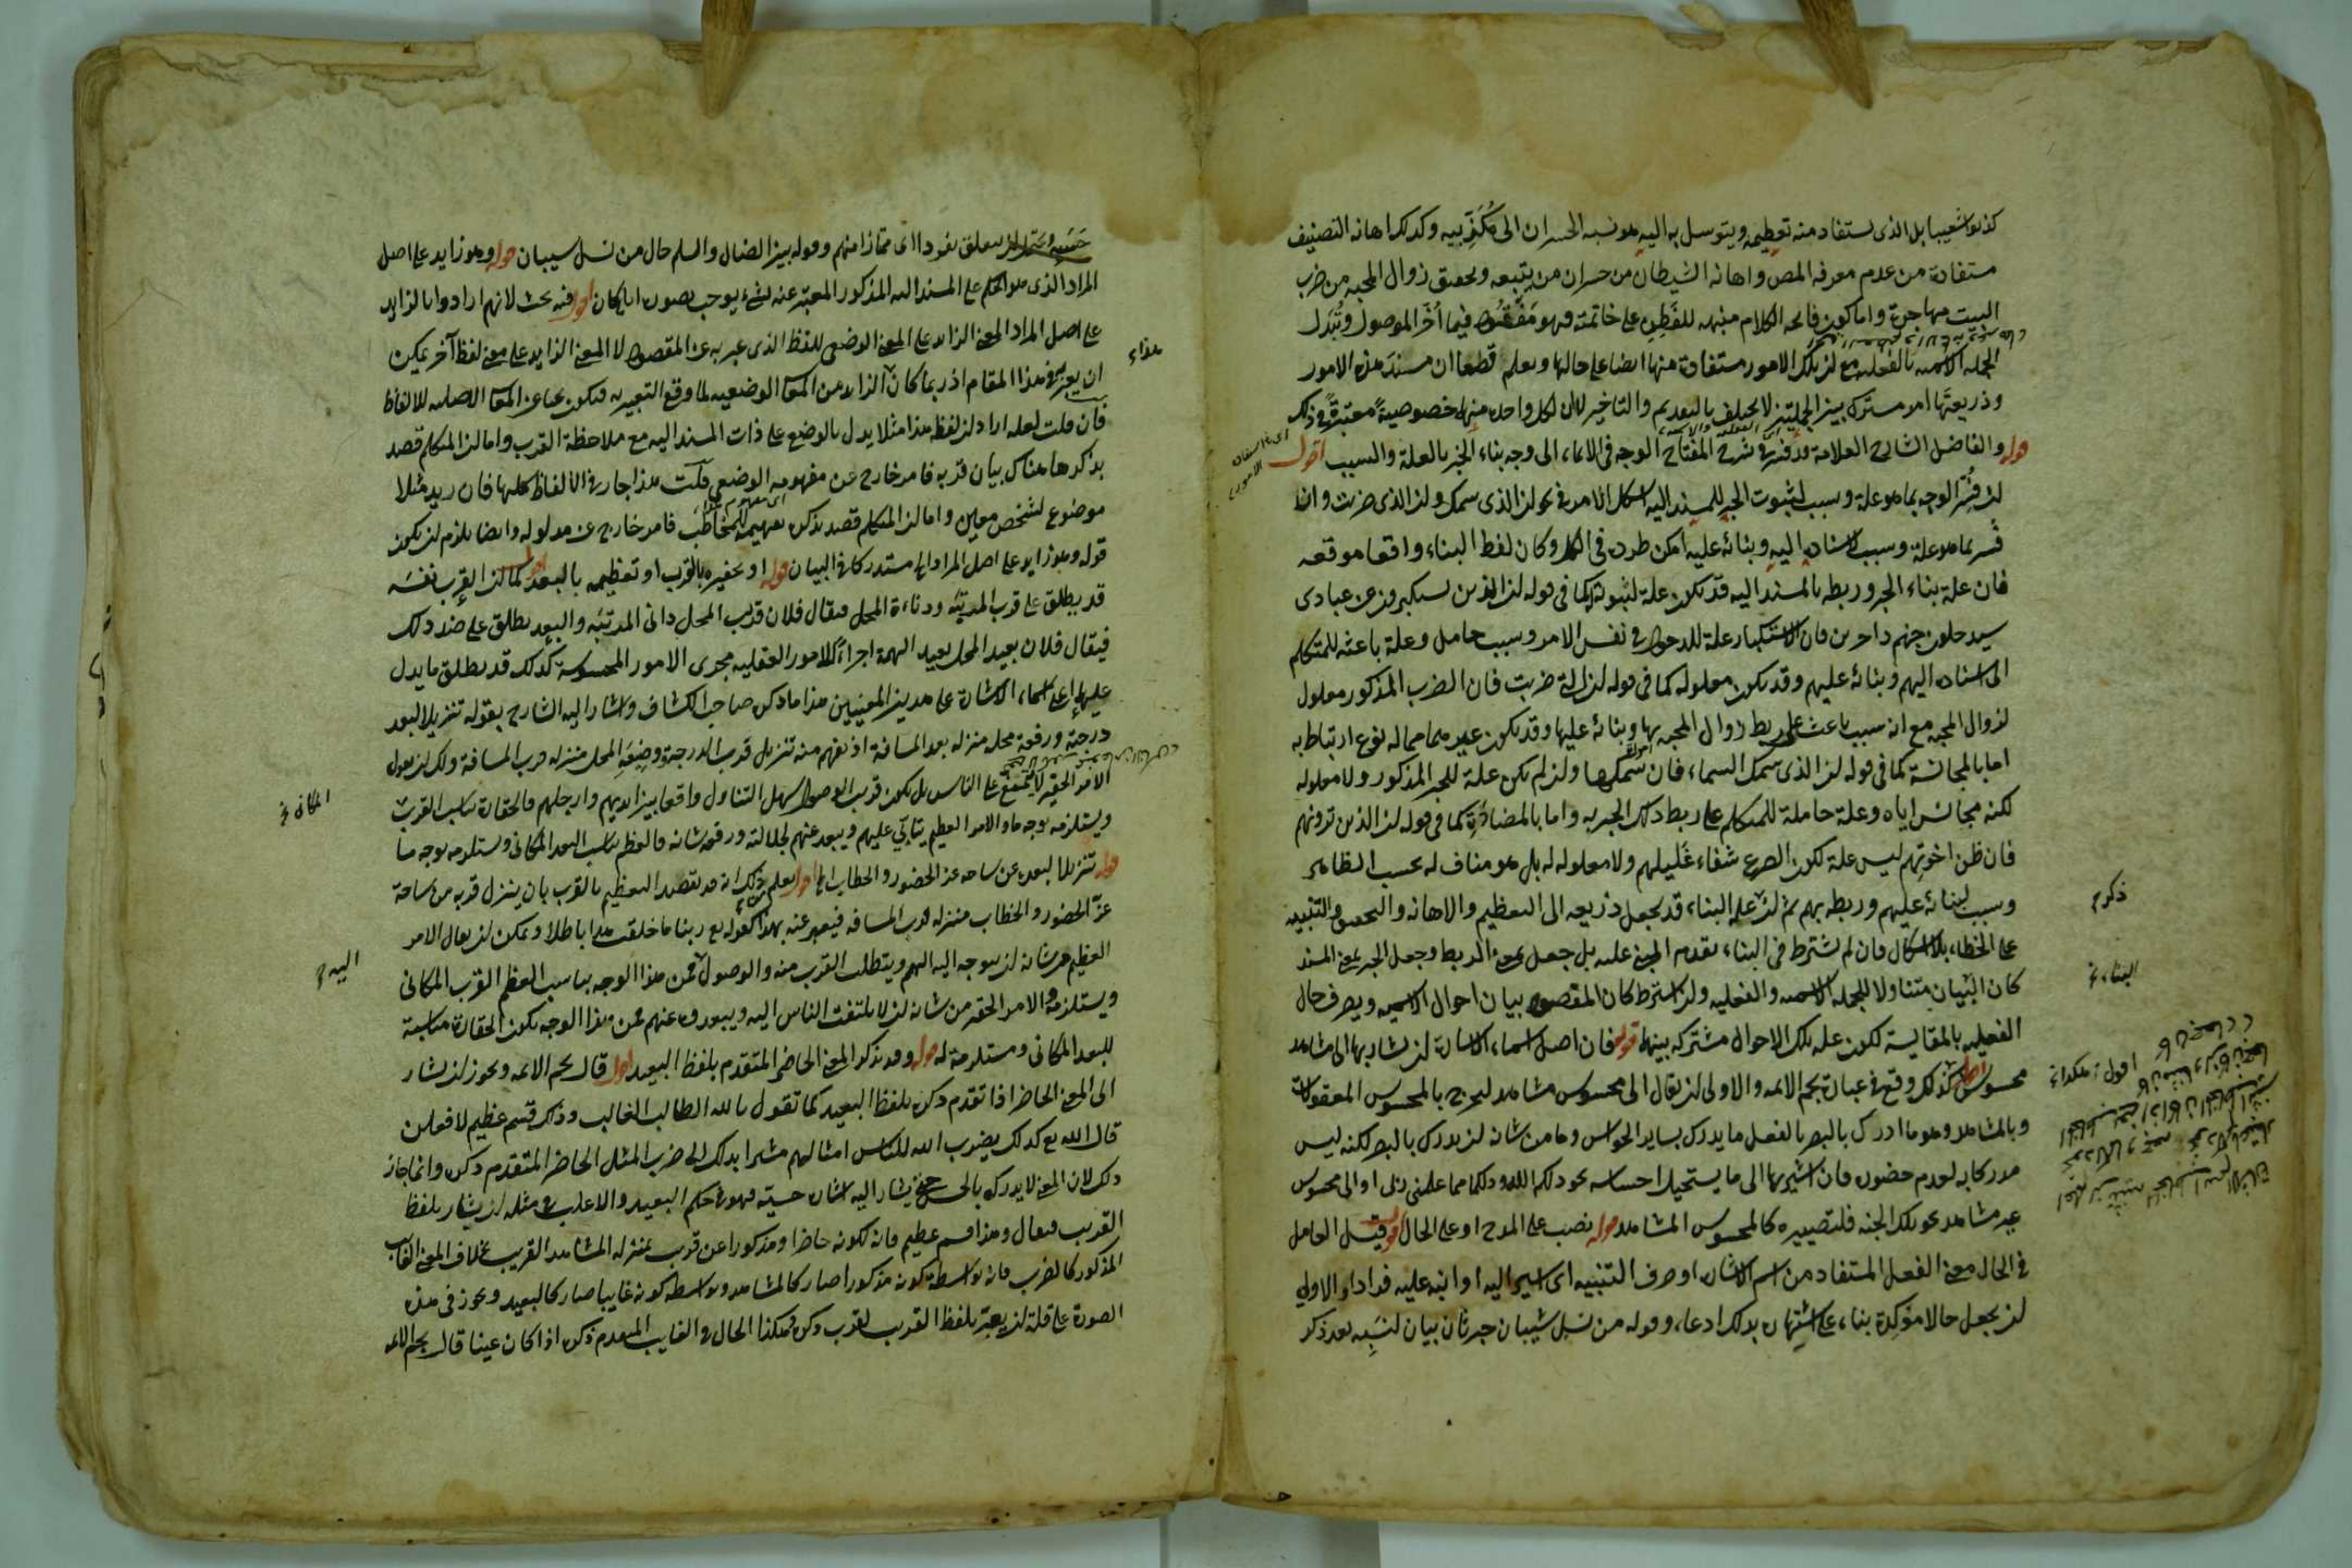 كذبوا شعيبا بل الذى يستفاد منه تعظيمه ويتوسل به اليه هو نسبة الخسران الى مكذبيه وكذلك اهانة التصنيف
مستفادة من عدم معرفة المص واهانة الشيطان من خسران من يتبعه وتحقق زوال المحبة من ضرب
البيت مهاجرة واما كون فاتحة الكلام منبهه للفطن على خاتمته فهو مفقود فيما أخر الموصول وتبدل
الجملة الاسمية بالفعلية مع ان تلك الامور مستفادة منها ايضا على حالها ويعلم قطعا ان مستند هذه الامور
وذريعتها امر مشترك بين الجملتين لا يختلف بالتقديم والتاخير لان لكل واحدة منها خصوصية معتبرة فى ذلك
قوله والفاضل الشارح العلامة قد فسر فى شرح المفتاح الوجه فى الايماء الى وجه بناء الخبر بالعلة والسبب اقول
ان فسر الوجه بما هو علة وسبب لثبوت الخبر للمسند اليه اشكل الامر فى نحو ان الذى سمك وان الذى ضربت وان
فسر بما هو علة وسبب لاسناده اليه وبنائه عليه امكن طرده فى الكل وكان لفظ البناء واقعا موقعه
فان علة بناء الخبر وربطه بالمسند اليه قد يكون علة لثبوته كما فى قوله ان الذين يستكبرون عن عبادتى
سيدخلون جهنم داخرين فان الاستكبار علة للدخول فى نفس الامر وسبب حامل وعلة باعثه للمتكلم
الى اسناده اليهم وبنائه عليهم وقد يكون معلوله كما فى قوله ان التى ضربت فان الضرب المذكور معلول
لزوال المحبة مع انه سبب باعث على ربط زوال المحبة بها وبنائه عليها وقد يكون غير هما مما له نوع ارتباط به
اما بالمجانسة كما فى قوله ان الذى سمك السماء فان سمكها وان لم يكن علة للخبر المذكور ولا معلوله
لكنه مجانس اياه وعلة حاملة للمتكلم على ربط ذلك الخبر به واما بالمضادة كما فى قوله ان الذين ترونهم
فان ظن اخوتهم ليس علة لكون الصرع شفاء غليلهم ولا معلوله له بل هو مناف له بحسب الظاهر
وسبب لبنائه عليهم وربطه بهم ثم ان علة البناء قد يجعل ذريعة الى التعظيم والاهانة والتحقق والتنبيه
على الخطاء بلا اشكال فان لم يشترط فى البناء تقدم المبنى عليه بل جعل بمعنى الربط وجعل الخبر بمعنى المسند
كان البيان متناولا للجملة الاسمية والفعلية وان اشترط كان المقصود بيان احوال الاسمية ويعرف حال
الفعلية بالمقايسة لكون علة تلك الاحوال مشتركه بينهما قوله فان اصل اسماء الاشارة ان يشار بها الى مشاهد
محسوس اقول كذلك وقع فى عبارة نجم الائمة والاولى ان يقال الى محسوس مشاهد ليخرج بالمحسوس المعقولات
وبالمشاهد وهو ما ادرك بالبصر بالفعل ما يدرك بساير الحواس وما من شانه ان يدرك بالبصر لكنه ليس
مدركا به لعدم حضوره فان اشير بها الى ما يستحيل احساسه نحو ذلكم الله وذلكما مما علمنى ربى او الى محسوس
غير مشاهد نحو تلك الجنة فلتصييره كالمحسوس المشاهد قوله نصب على المدح او على الحال اقول قيل العامل
فى الحال معنى الفعل المستفاد من اسم الاشارة او حرف التنبيه اى اشير اليه او انبه عليه فردا والاولى
ان يجعل حالا مؤكدة بناء على اشتهاره بذلك ادعاء وقوله من نسل شيبان خبر ثان بيان لنسبه بعد ذكر
ذكرم
البناء خ
حسبه وبين متعلق بفردا اى ممتازا منهم وقوله بين الضال والسلم حال من نسل شيبان قوله وهو زايد على اصل
المراد الذى هو الحكم على المسند اليه المذكور المعبر عنه بشىء يوجب تصوره ايا كان اقول فيه بحث لانهم ارادوا بالزايد
على اصل المراد المعنى الزايد على المعنى الوضعى للفظ الذى عبر به عن المقصود لا المعنى الزايد على معنى لفظ آخر يمكن
ان يعبر به فى هذا المقام اذ ربما كان الزايد من المعانى الوضعية لما وقع التعبير به فيكون بحثا عن المعانى الاصلية للالفاظ
فان قلت لعله اراد ان لفظ هذا مثلا يدل بالوضع على ذات المسند اليه مع ملاحظة القرب واما ان المتكلم قصد
بذكرها هناك بيان قربه فامر خارج عن مفهومه الوضعى قلت هذا جار فى الالفاظ كلها فان زيد مثلا
موضوع لشخص معين واما ان المتكلم قصد بذكره تفهيمه للمخاطب فامر خارج عن مدلوله وايضا يلزم ان يكون
قوله وهو زايد على اصل المراد الى مستدركا فى البيان قوله او تحقيره بالقرب او تعظيمه بالبعد اقول كما ان القرب نفسه
قد يطلق على قرب المرتبة ودناءة المحل فيقال فلان قريب المحل دانى المرتبة والبعد يطلق على ضد ذلك
فيقال فلان بعيد المحل بعيد الهمة اجراءً للامور العقلية مجرى الامور المحسوسة كذلك قد يطلق ما يدل
عليهما اعنى اسماء الاشارة على هذين المعنيين هذا ما ذكره صاحب الكشاف واشار اليه الشارح بقوله تنزيلا لبعد
درجته ورفعة محله منزلة بعد المسافة اذ يفهم منه تنزيل قرب الدرجة وضعة المحل منزلة قرب المسافة ولك ان تقول
الامر الحقير لا يمتنع على الناس بل يكون قريب الوصول سهل التناول واقعا بين ايديهم وارجلهم فالحقارة تناسب القرب
ويستلزمه بوجه ما والامر العظيم يتأبى عليهم ويبعد عنهم لجلالته ورفعة شانه فالعظم يناسب البعد المكانى ويستلزمه بوجه ما
قوله تنزيلا لبعده عن ساحة عز الحضور والخطاب الى اقول يعلم من ذلك انه قد يقصد التعظيم بالقرب بان ينزل قربه من ساحة
عز الحضور والخطاب منزلة قرب المسافة فيعبر عنه بهذا كقوله تع ربنا ما خلقت هذا باطلا ويمكن ان يقال الامر
العظيم من شانه ان يتوجه اليه الهمم ويتطلب القرب منه والوصول فمن هذا الوجه يناسب العظم القرب المكانى
ويستلزمه والامر الحقير من شانه ان لا يلتفت الناس اليه ويبعدوه عنهم فمن هذا الوجه يكون الحقارة مناسبة
للبعد المكانى ومستلزمة له قوله وقد يذكر المعنى الحاضر المتقدم بلفظ البعيد اقول قال نجم الائمة ويجوز ان يشار
الى المعنى الحاضر اذا تقدم ذكره بلفظ البعيد كما تقول بالله الطالب الغالب وذلك قسم عظيم لافعلن
قال الله تع كذلك يضرب الله للناس امثالهم مشيرا بذلك الى ضرب المثل الحاضر المتقدم ذكره وانما جاز
ذلك لان المعنى لا يدرك بالحس حتى يشار اليه اشارة حسية فهو فى حكم البعيد والاغلب فى مثله ان يشار بلفظ
القريب فيقال وهذا قسم عظيم فانه لكونه حاضرا ومذكورا عن قرب بمنزلة المشاهد القريب بخلاف المعنى الغائب
المذكور كالضرب فانه بواسطة كونه مذكورا صار كالمشاهد وبواسطة كونه غايبا صار كالبعيد ويجوز فى هذه
الصورة على قلة ان يعبر بلفظ القريب لقرب ذكره وهكذا الحال فى الغايب المتقدم ذكره اذا كان عينا قال نجم الائمة
هذا ء
المكانى خ
اليه م